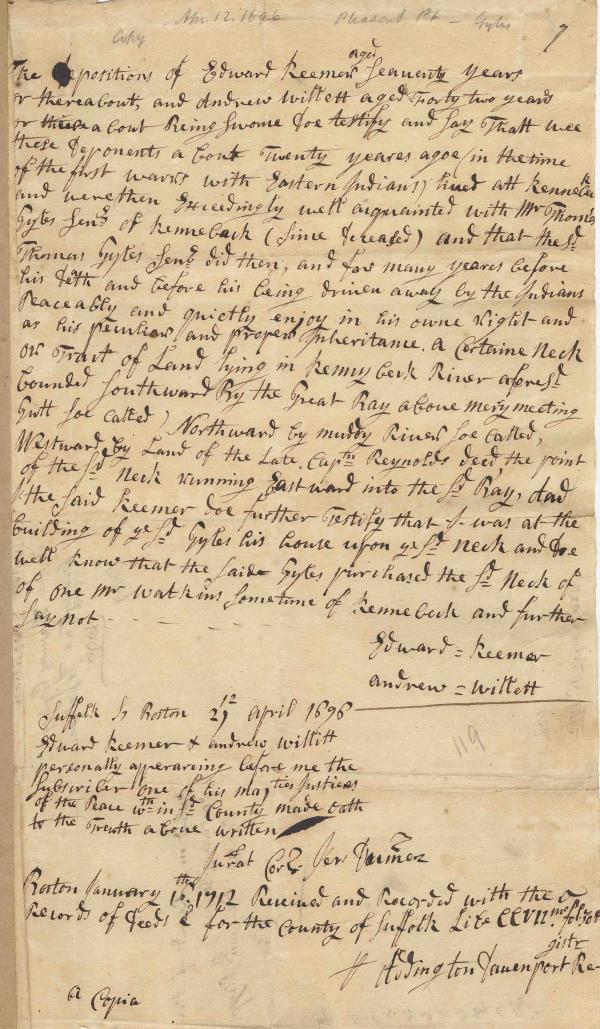 Apr. 12. 1696 Pleasant Pt - Gyles
Copy
7
The Depositions of Edward Keemer aged Seauenty years
or thereabout, and Andrew Willett aged Forty two years
or thereabout Being Sworne Doe testify and Say Thatt wee
these Deponents about Twenty yeares agoe, in the time
of the first warrs with Eastern Indians) liued att Kennebeck
and were then Exceedingly well acquainted with Mr Thomas
Gyles Senr of Kennebeck (Since Deceased) and that the sd
Thomas Gyles Senr did then, and for many yeares before
his Deth and before his being driuen away by the Indians
Peaceably and quietly enjoy in his owne right and
as his peculiar and proper Inheritance. a Certaine Neck
or Tract of Land lying in Kennybeck River aforesd
bounded Southward By the Great Bay aboue merymeeting
Gutt soe called) Northward by muddy River soe called,
Westward by Land of the Late Captn Reynolds decd, the point
of the sd Neck running Eastward into the sd Bay, And
I the said Keemer doe further Testify that I was at the
building of ye sd Gyles his house upon ye sd Neck and Doe
well know that the said Gyles purchased the sd Neck of
of one Mr Watkins sometime of Kennebeck and further
Say not
Edward = Keemer
Andrew = Willett
Suffolk Ss Boston April 1696
Edward Keemer & Andrew Willitt
personally apperareing before me the
Subscriber one of his maties Justices
of the Peace wthin sd County made oath
to the Truth aboue written
119
Jurat Cor: Jer: Dumer
Boston January 1712 Receiued and Recorded with the
Records of Deeds & for the County of Suffolk Lib. CCVII
Addington Davenport Re-
gistr
a Copia